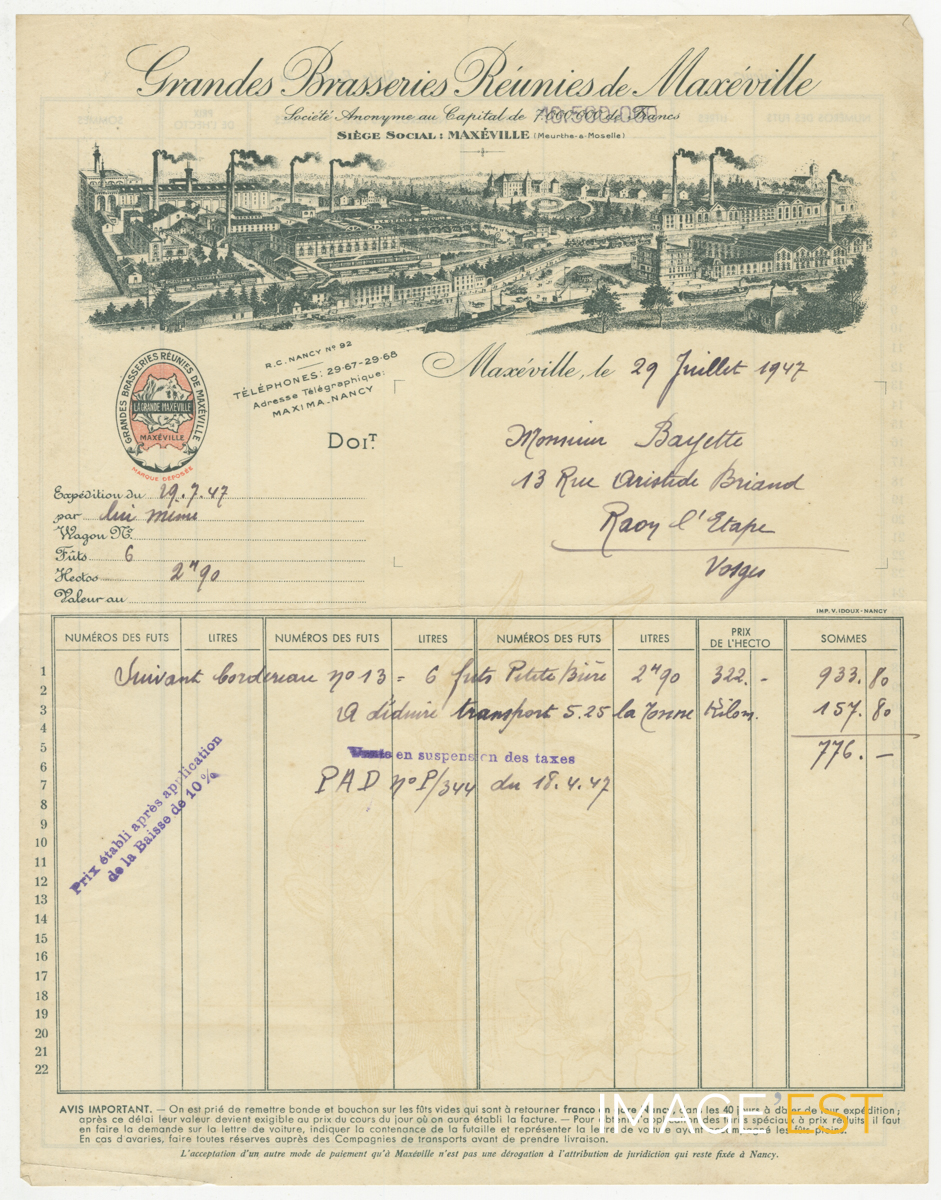 Grandes Brasseries Réunies de Maxéville
Société Anonyme au Capital de 10.500.000 de Francs
SIÈGE SOCIAL : MAXÉVILLE (Meurthe-&-Moselle)
GRANDES BRASSERIES RÉUNIES DE MAXÉVILLE
LA GRANDE MAXÉVILLE
MAXÉVILLE
MARQUE DÉPOSÉE
R.C. NANCY Nº 92
TÉLÉPHONES: 29-67-29-68
Adresse Télégraphique:
MAXIMA-NANCY
Maxéville, le 29 Juillet 1947
DOIT
Monsieur Bayette
13 Rue Aristide Briand
Raon l'Etape
Vosges
Expédition du 29.7.47
par lui même
Wagon Nº
Fûts 6
Hectos 2H90
Valeur au
IMP. V. IDOUX - NANCY
NUMÉROS DES FUTS LITRES NUMÉROS DES FUTS LITRES NUMÉROS DES FUTS LITRES PRIX DE L'HECTO SOMMES
1 Suivant bordereau nº 13 = 6 futs Petite Bière 2H90 322.- 933.80
2
3 A déduire transport 5.25 la Tonne Kilom. 157.80
4
5 776.-
Vente en suspension des taxes
6
7 PAD nº P/344 du 18.4.47
Prix établi après application
de la Baisse de 10 %
8
9
10
11
12
13
14
15
16
17
18
19
20
21
22
AVIS IMPORTANT. — On est prié de remettre bonde et bouchon sur les fûts vides qui sont à retourner franco en gare Nancy, dans les 40 jours à dater de leur expédition ;
après ce délai leur valeur devient exigible au prix du cours du jour où on aura établi la facture. — Pour obtenir l'application des tarifs spéciaux à prix réduits, il faut
en faire la demande sur la lettre de voiture, indiquer la contenance de la futaille et représenter la lettre de voiture ayant accompagné les fûts pleins.
En cas d'avaries, faire toutes réserves auprès des Compagnies de transports avant de prendre livraison.
L'acceptation d'un autre mode de paiement qu'à Maxéville n'est pas une dérogation à l'attribution de juridiction qui reste fixée à Nancy.
IMAGE'EST